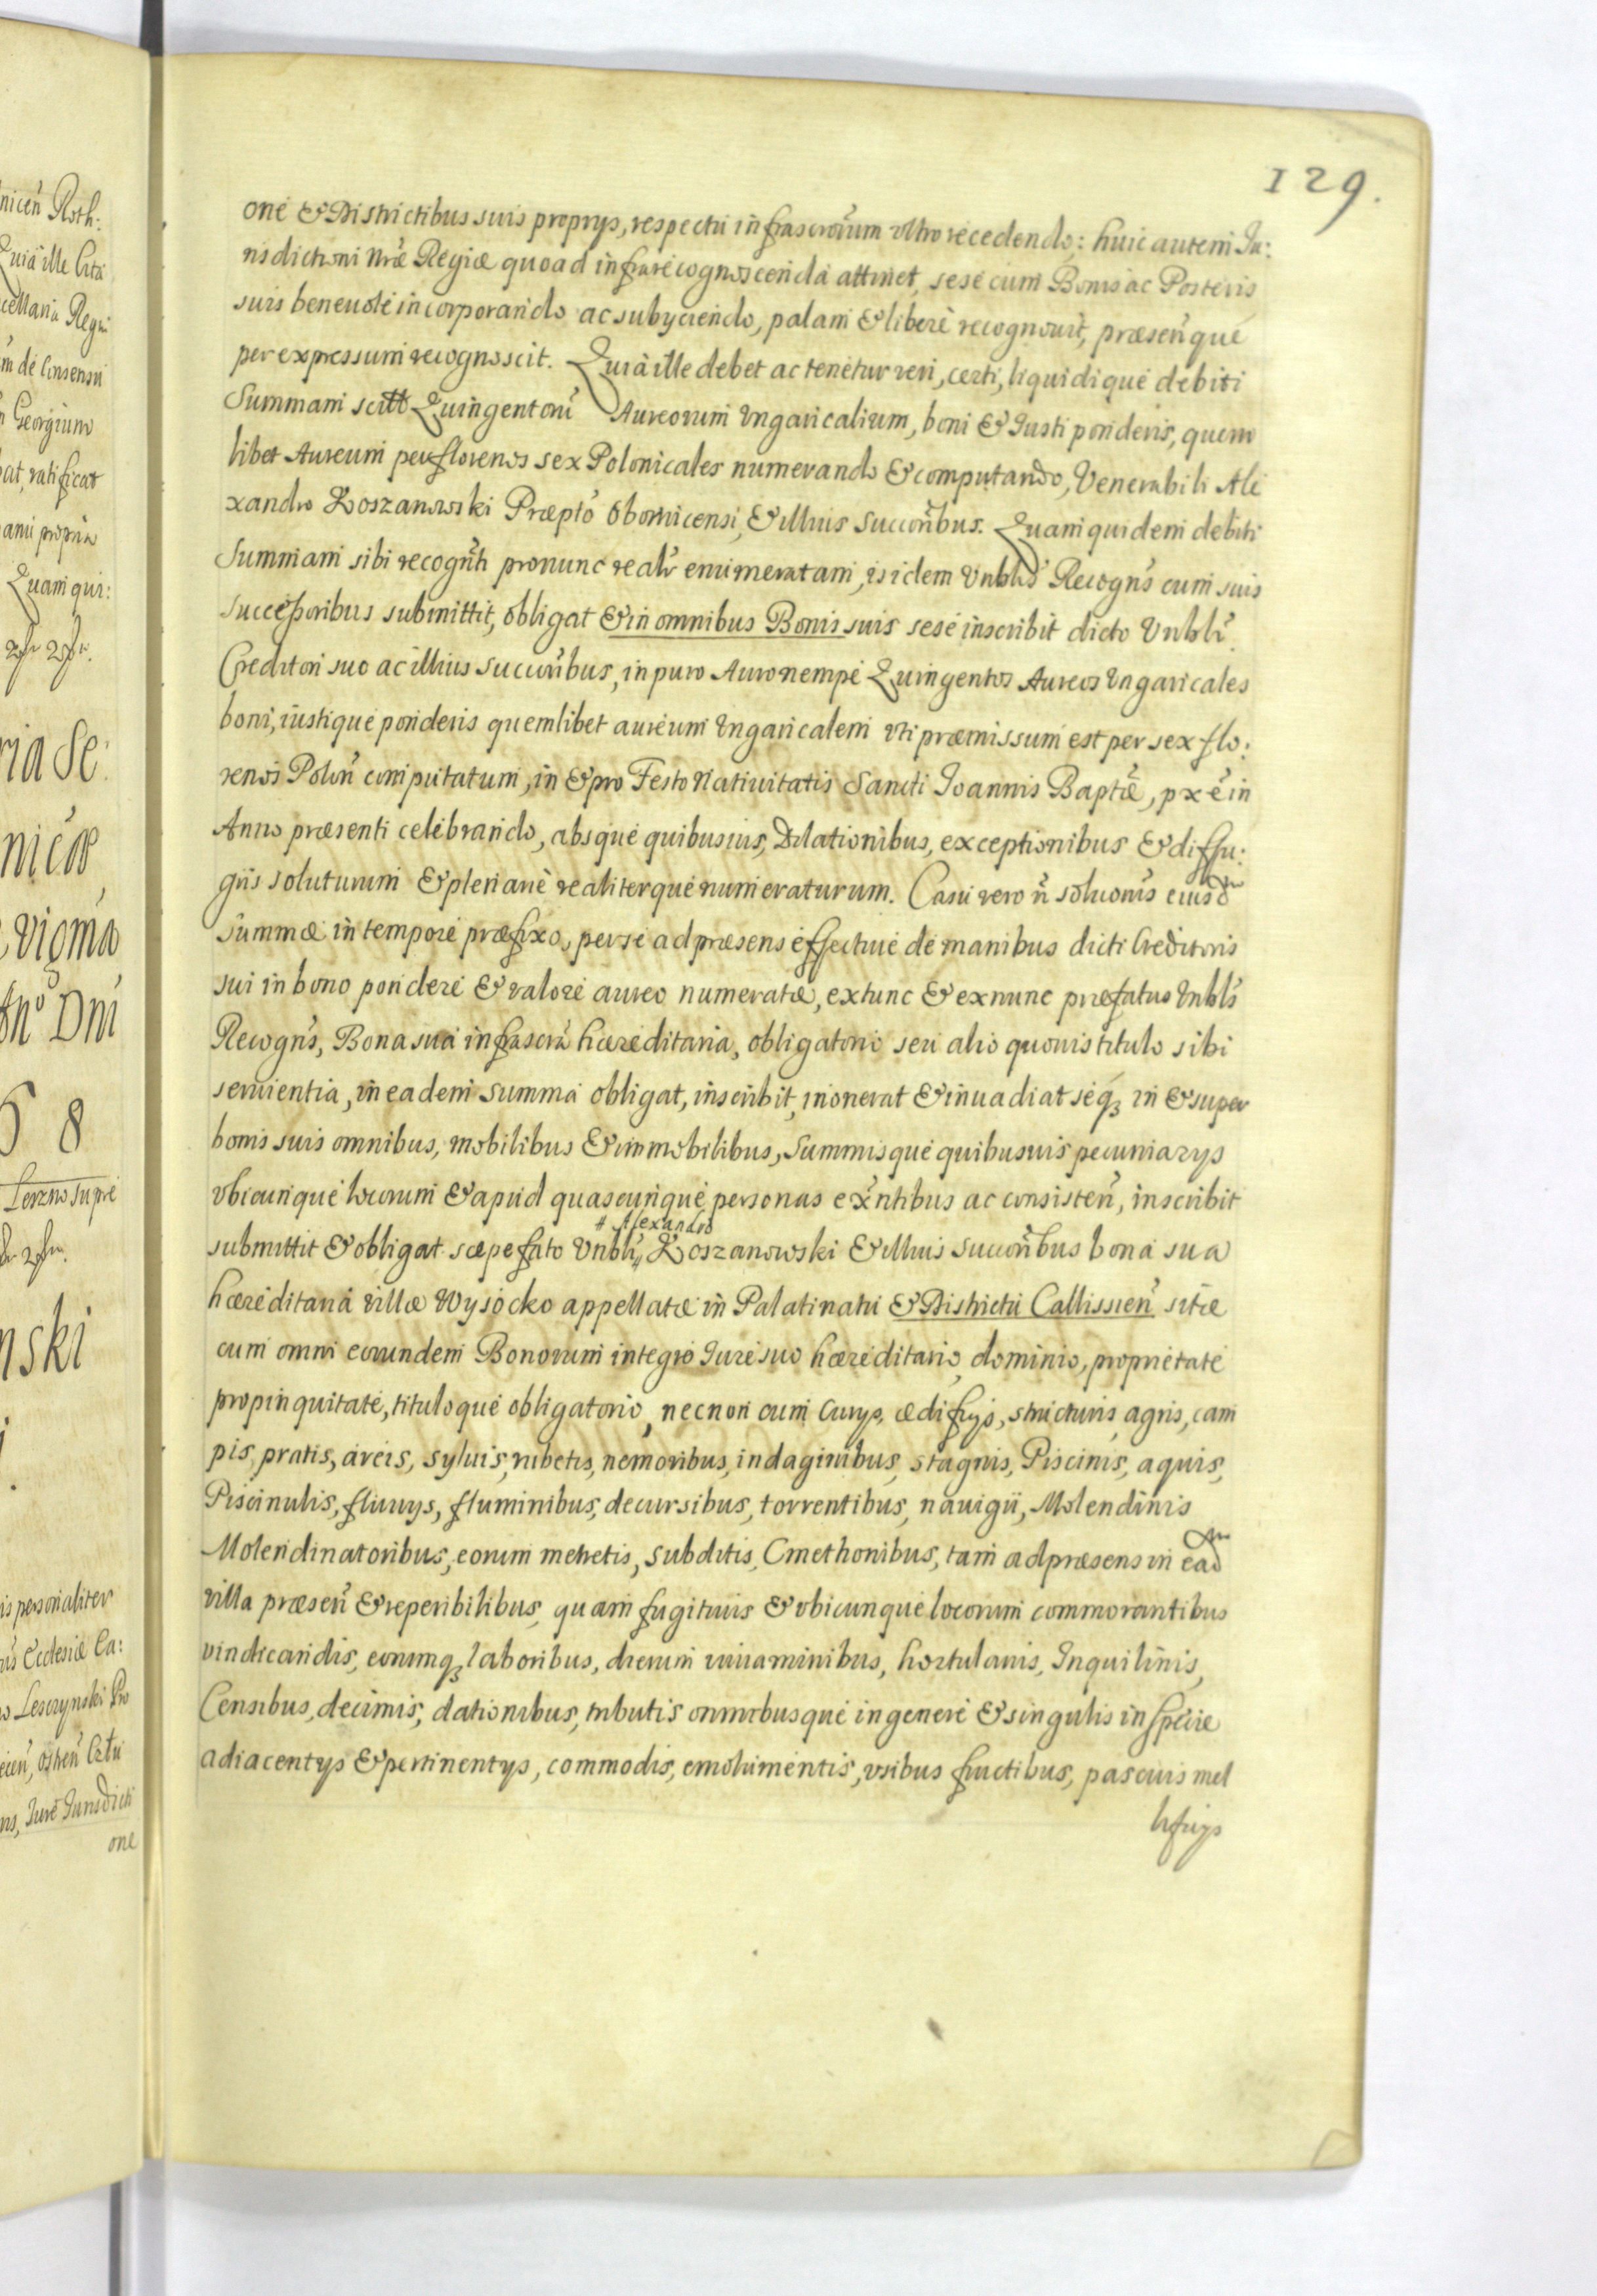 129.
one & Districtibus suis proprys, respectu infrascrorum vltro recedendo: huic autem Iu:
risdictioni nræ Regiæ quoad infra recognoscenda attinet, sese cum Bonis ac Posteris
suis beneuole incorporando ac subyciendo, palam & libere recognouit, præsenque
per expressum recognoscit. Quia ille debet ac tenetur veri, certi, liquidique debiti
Summam scitt Quingentorum Aureorum Vngaricalium, boni & Iusti ponderis, quem
libet Aureum per florenos sex Polonicales numerando & computando, Venerabili Ale
xandro Koszanowski Præpto Obornicensi, & illius Succoribus. Quam quidem debiti
Summam sibi recognti pronunc realr enumeratam, is idem Vnblis Recogns cum suis
successoribus submittit, obligat & in omnibus Bonis suis sese inscribit dicto Vnbli
Creditori suo ac illius succoribus, in puro Auro nempe Quingentos Aureos Vngaricales
boni, iustique ponderis quemlibet aureum Vngaricalem vti præmissum est per sex flo:
renos Polon computatum, in & pro Festo Natiuitatis Sancti Ioannis Baptæ, pxe in
Anno præsenti celebrando, absque quibusuis, Dilationibus, exceptionibus & diffu:
giis soluturum & plenarie realiterque numeraturum. Casu vero n soluonis eiusd
summæ in tempore præfixo, per se ad præsens effectiue de manibus dicti Creditoris
sui in bono pondere & valore aureo numeratæ, extunc & exnunc præfatus Vnbls
Recogns, Bona sua infrascra hæreditaria, obligatorio seu alio quouis titulo sibi
seruientia, in eadem summa obligat, inscribit, inonerat & inuadiat seq3 in & super
bonis suis omnibus, mobilibus & immobilibus, Summisque quibusuis pecuniarys
vbicunque locorum & apud quascunque personas exntibus ac consisten, inscribit
# Alexandro
submittit & obligat sæpefato Vnbli # Koszanowski & illius succoribus bona sua
hæreditaria villæ Wysocko appellatæ in Palatinatu & Districtu Callissien sitæ
cum omni eorundem Bonorum integro Iure suo hæreditario, dominio, proprietate
propinquitate, tituloque obligatorio, necnon cum Curys, ædificys, structuris, agris, cam
pis, pratis, areis, syluis, rubetis, nemoribus, indaginibus, stagnis, Piscinis, aquis,
Piscinulis, fluuys, fluminibus, decursibus, torrentibus, nauigii, Molendinis
Molendinatoribus, eorum metretis, subditis, Cmethonibus, tam ad præsens in ead
villa præsen & reperibilibus, quam fugitiuis & vbicunque locorum commorantibus
vindicandis, eorumq3 laboribus, dierum iuuaminibus, hortulanis, Inquilinis,
Censibus, decimis, dationibus, tributis omnibusque in genere & singulis in specie
adiacentys & pertinentys, commodis, emolumentis, vsibus fructibus, pascuis mel
lificys